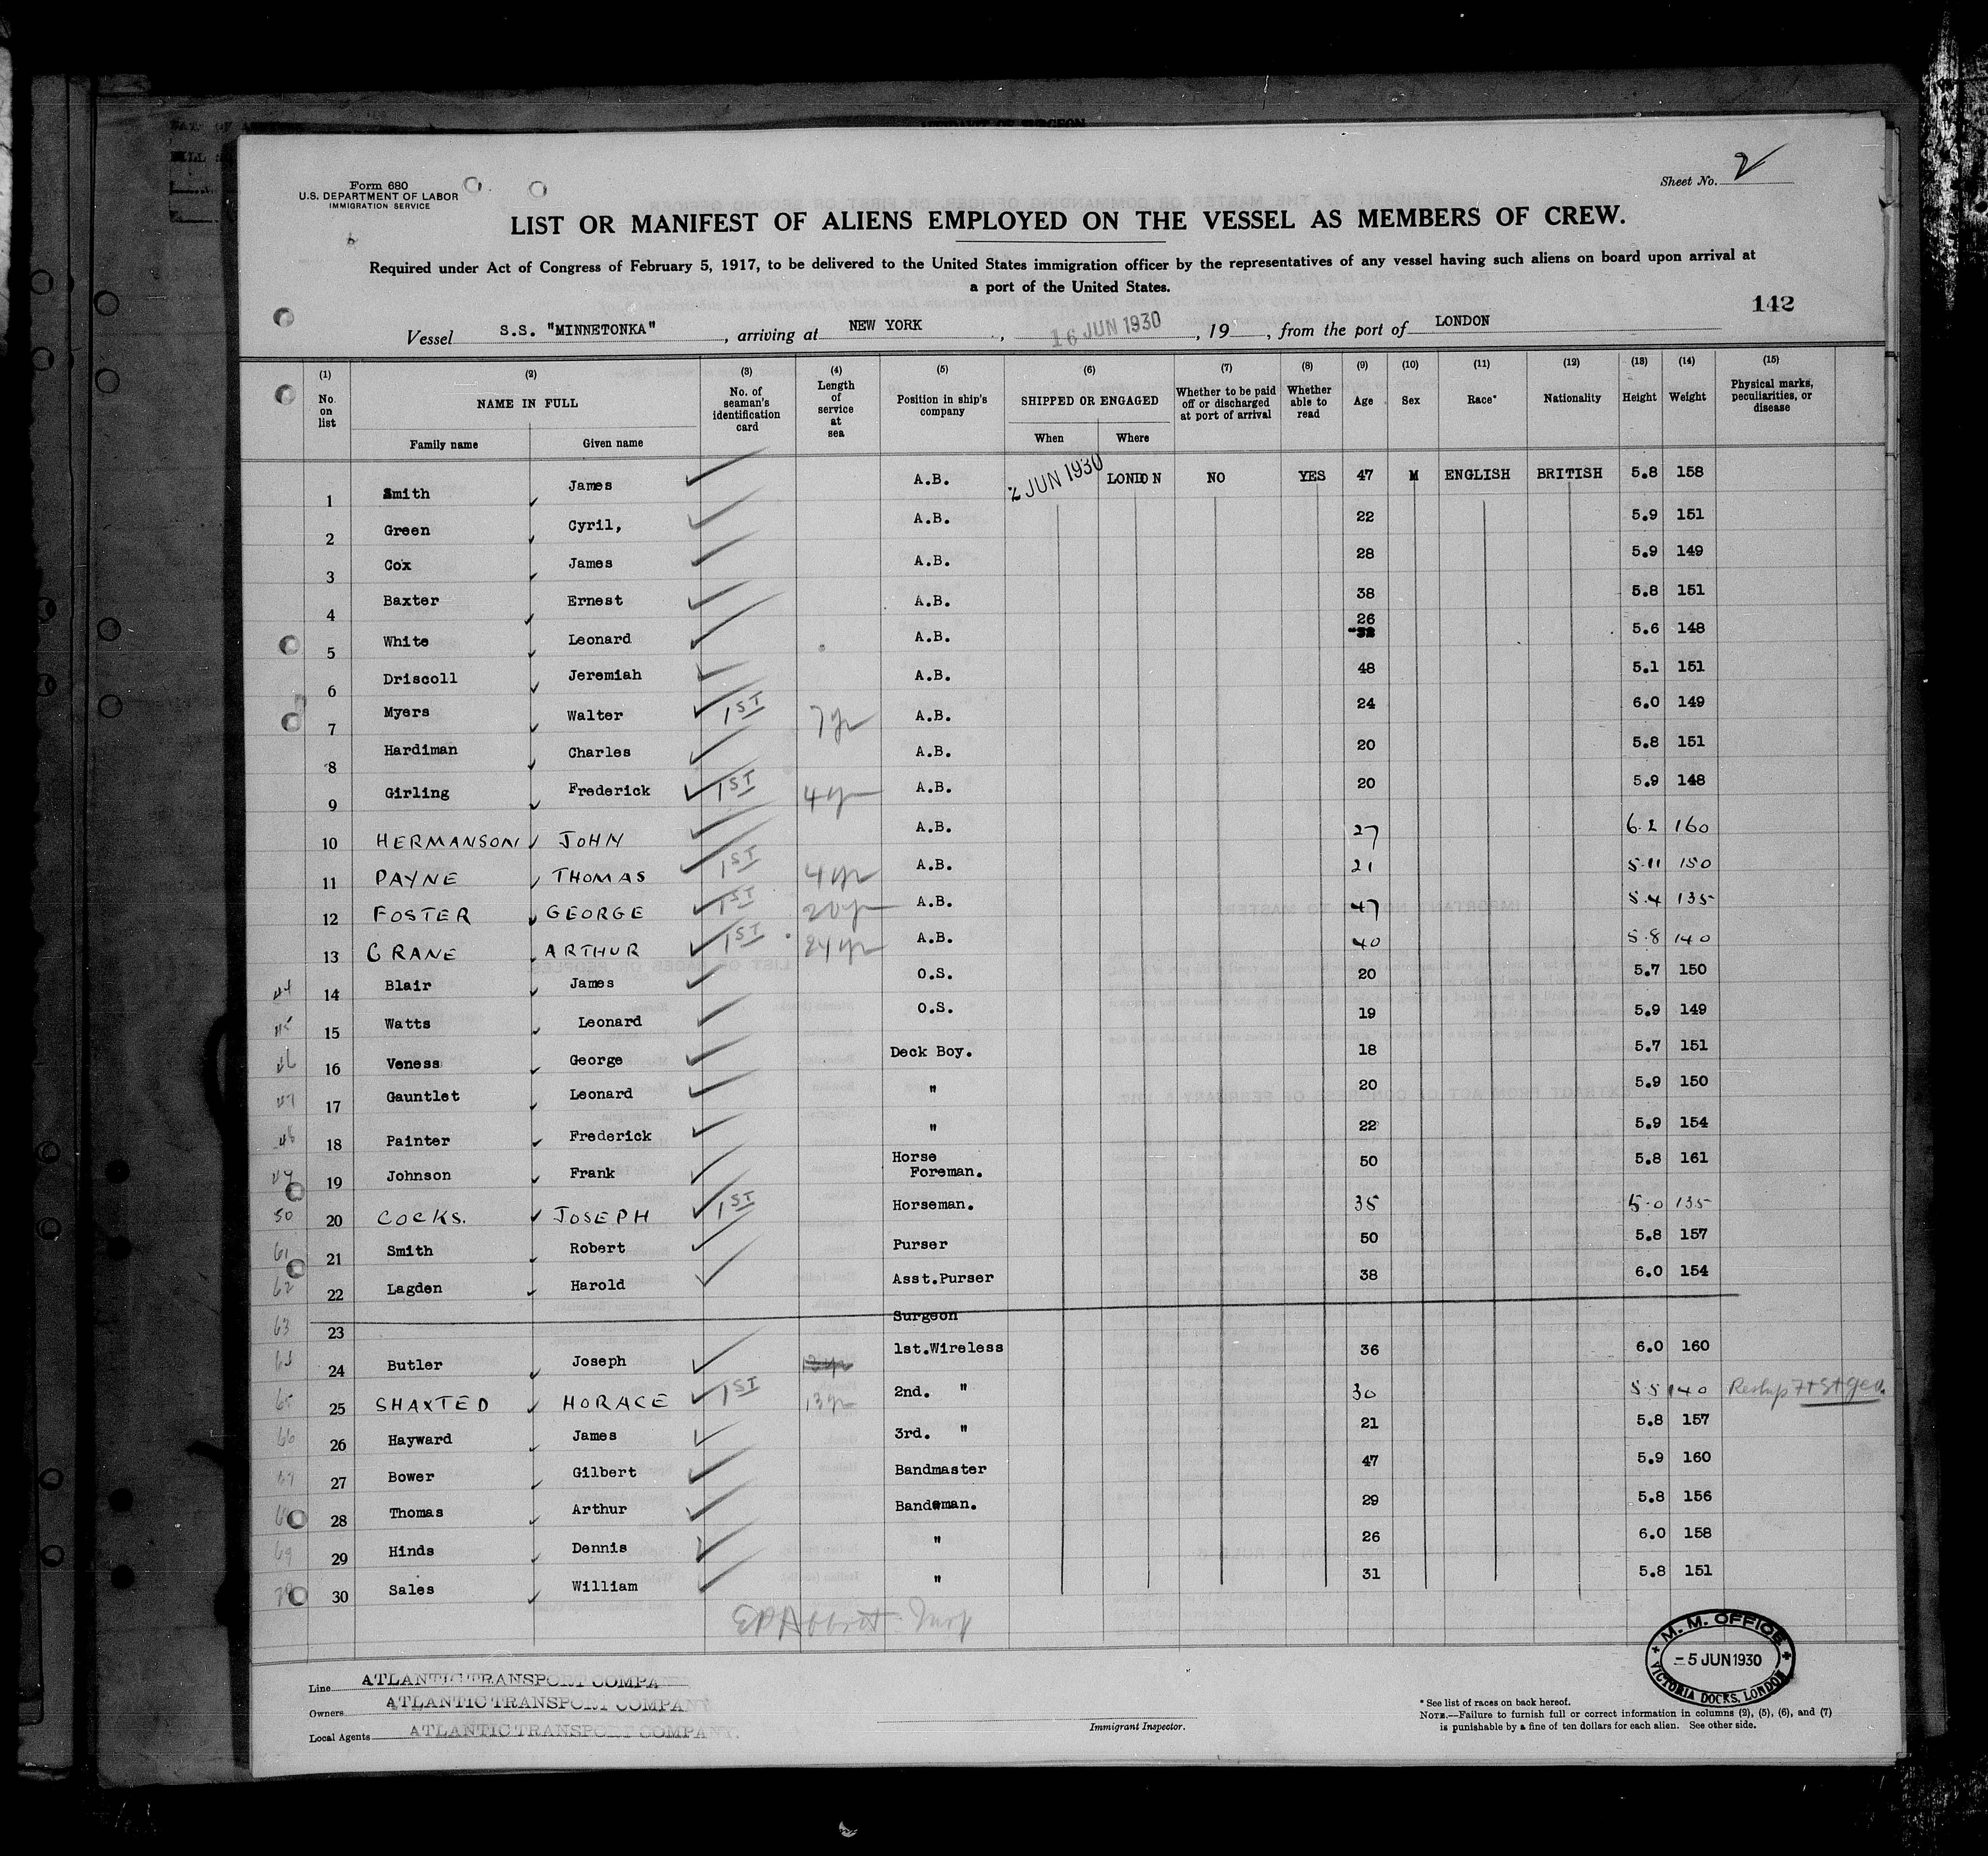 Form 680
U.S. DEPARTMENT OF LABOR
IMMIGRATION SERVICE
Sheet No. 2
LIST OR MANIFEST OF ALIENS EMPLOYED ON THE VESSEL AS MEMBERS OF CREW.
Required under Act of Congress of February 5, 1917, to be delivered to the United States immigration officer by the representatives of any vessel having such aliens on board upon arrival at
a port of the United States.
142
Vessel S.S. "MINNETONKA", arriving at NEW YORK, 16 JUN 1930, 19, from the port of LONDON
(1) No. on list
(2) NAME IN FULL Family name Given name
(3) No. of seaman's identification card
(4) Length of service at sea
(5) Position in ship's company
(6) SHIPPED OR ENGAGED When Where
(7) Whether to be paid off or discharged at port of arrival
(8) Whether able to read
(9) Age
(10) Sex
(11) Race*
(12) Nationality
(13) Height
(14) Weight
(15) Physical marks, peculiarities, or disease
1 Smith James A.B. 2 JUN 1930 LONDON NO YES 47 M ENGLISH BRITISH 5.8 158
2 Green Cyril, A.B. 22 5.9 151
3 Cox James A.B. 28 5.9 149
4 Baxter Ernest A.B. 38 5.8 151
5 White Leonard A.B. 26 5.6 148
6 Driscoll Jeremiah A.B. 48 5.1 151
7 Myers Walter 1ST 7yr A.B. 24 6.0 149
8 Hardiman Charles A.B. 20 5.8 151
9 Girling Frederick 1ST 4yr A.B. 20 5.9 148
10 HERMANSON JOHN A.B. 27 6.2 160
11 PAYNE THOMAS 1ST 4yr A.B. 21 5.11 150
12 FOSTER GEORGE 1ST 20yr A.B. 47 5.4 135
13 CRANE ARTHUR 1ST 24yr A.B. 40 5.8 140
44 14 Blair James O.S. 20 5.7 150
45 15 Watts Leonard O.S. 19 5.9 149
46 16 Veness George Deck Boy. 18 5.7 151
47 17 Gauntlet Leonard " 20 5.9 150
48 18 Painter Frederick " 22 5.9 154
49 19 Johnson Frank Horse Foreman. 50 5.8 161
50 20 COCKS. JOSEPH 1ST Horseman. 35 5.0 135
61 21 Smith Robert Purser 50 5.8 157
62 22 Lagden Harold Asst.Purser 38 6.0 154
63 23 Surgeon
64 24 Butler Joseph 1st.Wireless 36 6.0 160
65 25 SHAXTED HORACE 1ST 13yr 2nd. " 30 5.5 140 Reship 7+St Geo.
66 26 Hayward James 3rd. " 21 5.8 157
67 27 Bower Gilbert Bandmaster 47 5.9 160
68 28 Thomas Arthur Bandsman. 29 5.8 156
69 29 Hinds Dennis " 26 6.0 158
70 30 Sales William " 31 5.8 151
EP Abbott Insp
M. M. OFFICE
-5 JUN 1930
VICTORIA DOCKS, LONDON
Line ATLANTIC TRANSPORT COMPA
Owners ATLANTIC TRANSPORT COMPANY
Local Agents ATLANTIC TRANSPORT COMPANY.
Immigrant Inspector.
* See list of races on back hereof.
NOTE.—Failure to furnish full or correct information in columns (2), (5), (6), and (7)
is punishable by a fine of ten dollars for each alien. See other side.